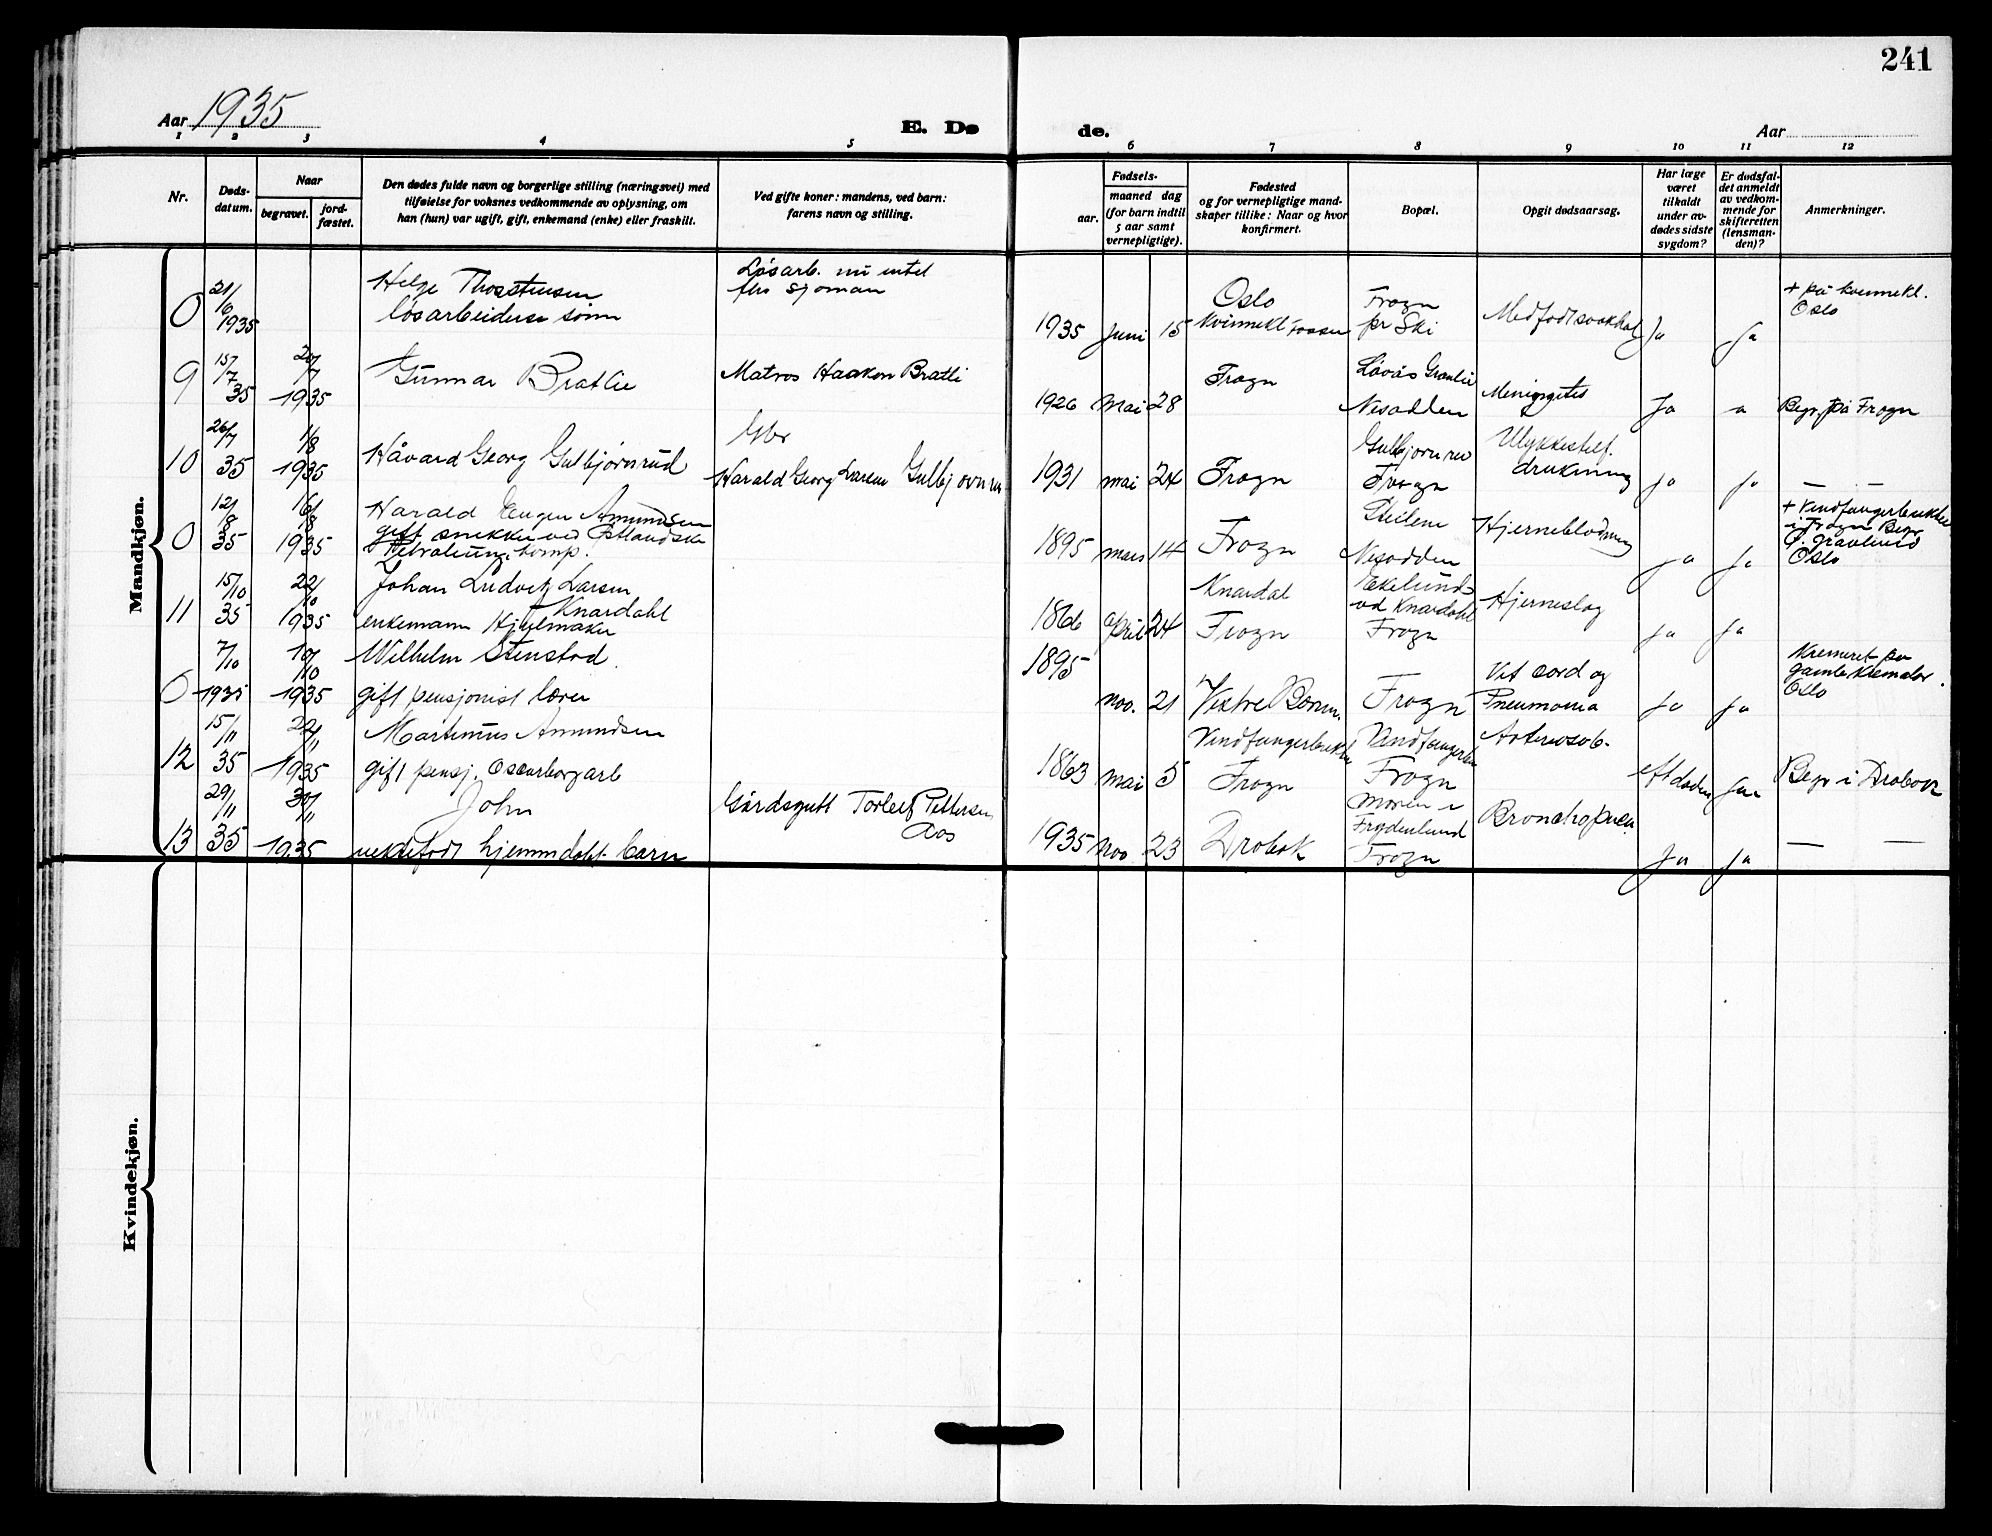 241
Aar 1935
E. Dø
de.
Aar
1 2 3 4 5 6 7 8 9 10 11 12
Nr.
Døds-
datum.
Naar
begravet.
jord-
fæstet.
Den dødes fulde navn og borgerlige stilling (næringsvei) med
tilføielse for voksnes vedkommende av oplysning, om
han (hun) var ugift, gift, enkemand (enke) eller fraskilt.
Ved gifte koner: mandens, ved barn:
farens navn og stilling.
Fødsels-
aar.
maaned dag
(for barn indtil
5 aar samt
vernepligtige).
Fødested
og for vernepligtige mand-
skaper tillike: Naar og hvor
konfirmert.
Bopæl.
Opgit dødsaarsag.
Har læge
været
tilkaldt
under av-
dødes sidste
sygdom?
Er dødsfal-
det anmeldt
av vedkom-
mende for
skifteretten
(lensman-
den)?
Anmerkninger.
Mandkjøn.
0 21/6 1935
Helge Thorstensen
løsarbeiders sønn
Løsarb.
sjoman
1935 Juni 15
Oslo
Kvinnekl.
Frogn
pr Ski
Ja
Ja
+ på kvinnekl.
Oslo
9 15/7 35
20/7 1935
Gunnar Bratlie
Matros Haakon Bratli
1926 Mai 28
Frogn
Nesodden
Ja
Begr. på Frogn
10 26/7 35
1/8 1935
Håvard Georg Gulbjørnrud
Gbr
Harald Georg Larsen
1931 mai 24
Frogn
Frogn
drukning
Ja
Ja
— —
0 12/8 35
16/8 1935
Harald Eugen Amundsen
gift snekker ved Østlandske
Petroleum comp.
1895 mars 14
Frogn
Steilene
Nesodden
Hjerneblødning
Ja
Ja
i Frogn Begr
Oslo
11 15/10 35
22/10 1935
Johan Ludvig Larsen
Knardahl
enkemann Hjulmaker
1866 april 24
Knardal
Frogn
Ekelund
ved Knardahl
Frogn
Hjerneslag
Ja
Ja
0 7/10 1935
10/10 1935
Wilhelm Stenstad
gift pensjonist lærer
1895
nov. 21
Vestre
Frogn
Vit. cord og
Pneumonia
Ja
Ja
Kremeret på
gamle
Oslo
12 15/11 35
22/11 1935
Martinius Amundsen
gift pensj. Oscarborgarb
1863 mai 5
Vindfangerbukten
Frogn
Frogn
eft døden
Begr i Drøbak
13 29/11 35
30/11 1935
John
uektefødt hjemmdøbt barn
Gårdsgutt Torleif Pettersen
Aas
1935 Nov 23
Drøbak
Moren i
Frydenlund
Frogn
Ja
Ja
— —
Kvindekjøn.